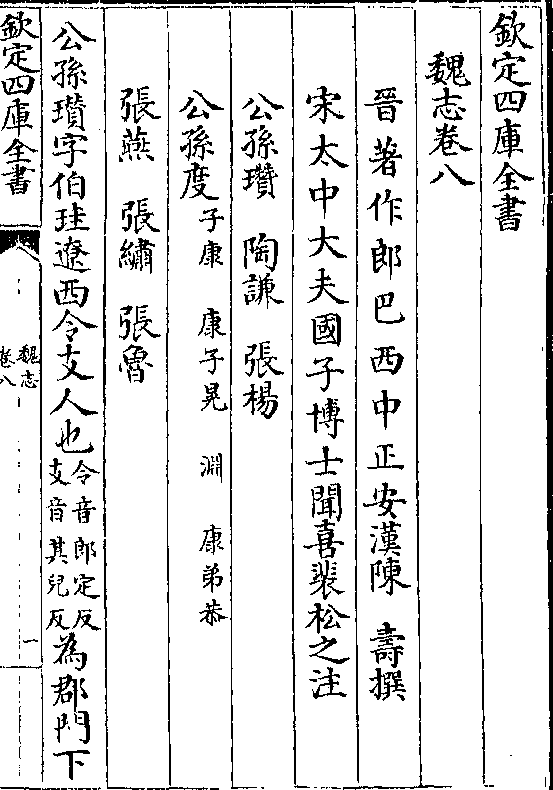 欽定四庫全書
魏志卷八
晉著作郎巴西中正安漢陳 壽撰
宋太中大夫國子博士聞喜裴松之注
公孫瓚 陶謙 張楊
公孫度子康 康子晃 淵 康弟恭
張燕 張繡 張魯
公孫瓚字伯珪遼西令支人也令音郎定反支音其兒反為郡門下
欽定四庫全書
魏志
卷八
一